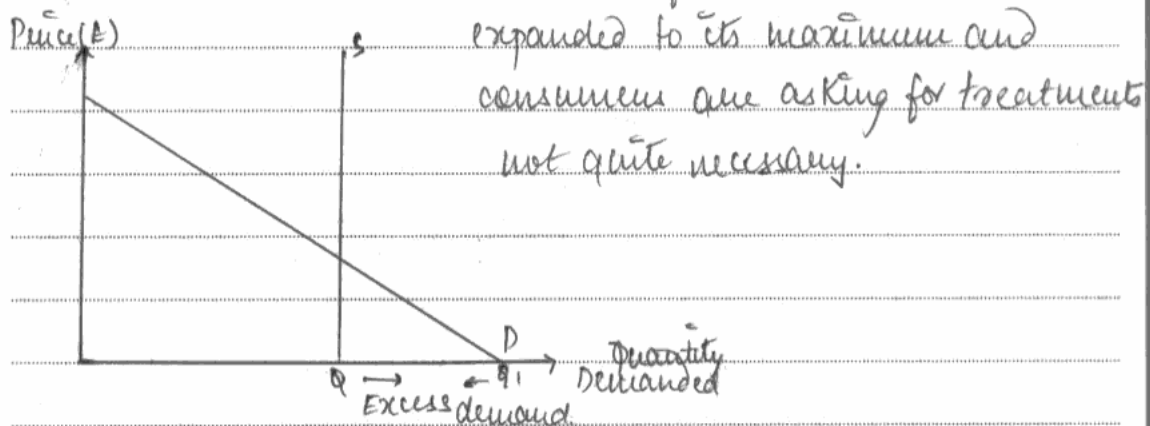 Price(£)
S
expanded to its maximum and
consumers are asking for treatments
not quite necessary.
D
Quantity
Demanded
Q → ← Q1
Excess demand